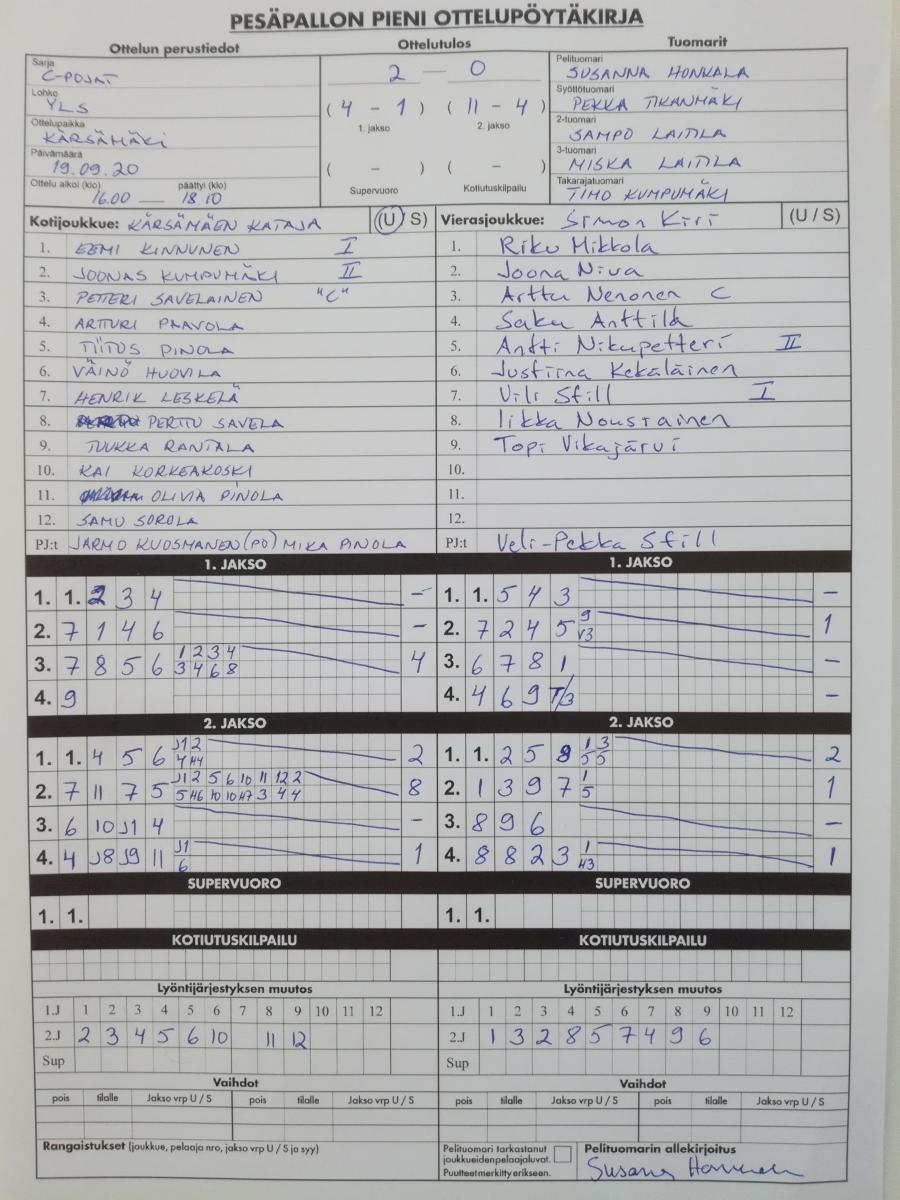 PESÄPALLON PIENI OTTELUPÖYTÄKIRJA
Ottelun perustiedot
Ottelutulos
Tuomarit
Sarja
C-POJAT
Lohko
YLS
Ottelupaikka
KÄRSÄMÄKI
Päivämäärä
19.09.20
Ottelu alkoi (klo) päättyi (klo)
16.00 — 18.10
2 — 0
( 4 - 1 ) ( 11 - 4 )
1. jakso 2. jakso
( - ) ( - )
Supervuoro Kotiutuskilpailu
Pelituomari
SUSANNA HONKALA
Syöttötuomari
PEKKA TIKANMÄKI
2-tuomari
SAMPO LAITILA
3-tuomari
MISKA LAITILA
Takarajatuomari
TIMO KUMPUMÄKI
Kotijoukkue: KÄRSÄMÄEN KATAJA (U / S)
1. EEMI KINNUNEN I
2. JOONAS KUMPUMÄKI II
3. PETTERI SAVELAINEN "C"
4. ARTTURI PAAVOLA
5. TIITUS PINOLA
6. VÄINÖ HUOVILA
7. HENRIK LESKELÄ
8. PERTTU SAVELA
9. TUUKKA RANTALA
10. KAI KORKEAKOSKI
11. OLIVIA PINOLA
12. SAMU SOROLA
PJ:t JARMO KUOSMANEN (PO) MIKA PINOLA
Vierasjoukkue: Simon Kiri (U / S)
1. Riku Mikkola
2. Joona Niva
3. Arttu Nenonen C
4. Saku Anttila
5. Antti Nikupetteri II
6. Justiina Kekäläinen
7. Vili Sfill I
8. Iikka Nousiainen
9. Topi Vikajärvi
10.
11.
12.
PJ:t Veli-Pekka Sfill
1. JAKSO
1. 1. 2 3 4 -
2. 7 1 4 6 -
3. 7 8 5 6 1 2 3 4 4
3 4 6 8
4. 9
1. JAKSO
1. 1. 5 4 3 -
2. 7 2 4 5 9 1
V3
3. 6 7 8 1 -
4. 4 6 9 T/3 -
2. JAKSO
1. 1. 4 5 6 J1 2 2
4 H4
2. 7 11 7 5 J1 2 5 6 10 11 12 2 8
5 H6 10 10 H7 3 4 4
3. 6 10 J1 4 -
4. 4 J8 J9 11 J1 1
6
2. JAKSO
1. 1. 2 5 8 1 3 2
5 5
2. 1 3 9 7 1 1
5
3. 8 9 6 -
4. 8 8 2 3 1 1
H3
SUPERVUORO
1. 1.
SUPERVUORO
1. 1.
KOTIUTUSKILPAILU
KOTIUTUSKILPAILU
Lyöntijärjestyksen muutos
1.J 1 2 3 4 5 6 7 8 9 10 11 12
2.J 2 3 4 5 6 10 11 12
Sup
Lyöntijärjestyksen muutos
1.J 1 2 3 4 5 6 7 8 9 10 11 12
2.J 1 3 2 8 5 7 4 9 6
Sup
Vaihdot
pois tilalle Jakso vrp U / S pois tilalle Jakso vrp U / S
Vaihdot
pois tilalle Jakso vrp U / S pois tilalle Jakso vrp U / S
Rangaistukset (joukkue, pelaaja nro, jakso vrp U / S ja syy)
Pelituomari tarkastanut
joukkueidenpelaajaluvat.
Puutteetmerkitty erikseen.
Pelituomarin allekirjoitus